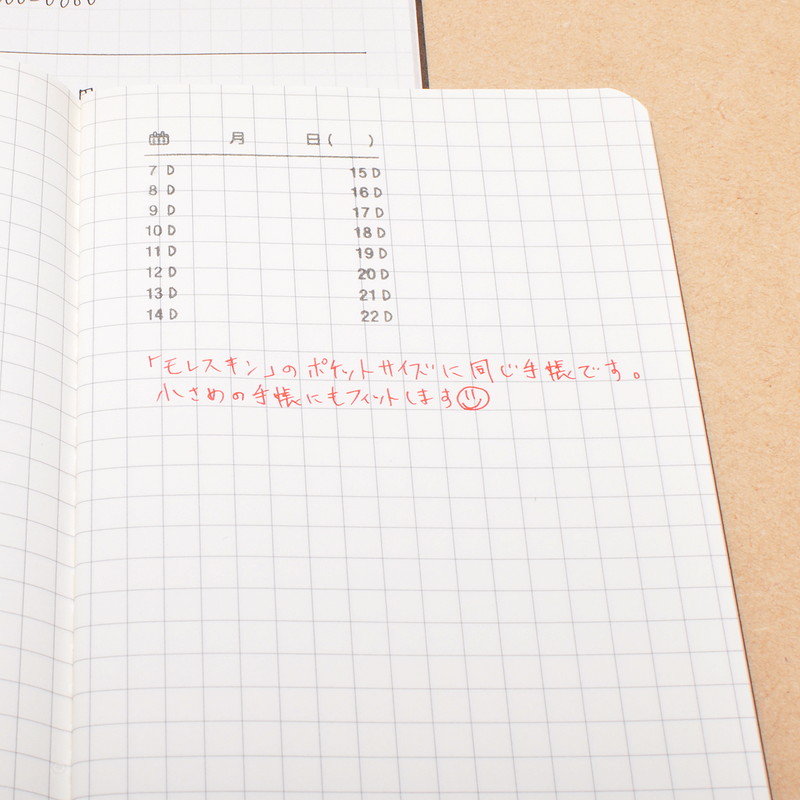 月 日( )
7 15
8 16
9 17
10 18
11 19
12 20
13 21
14 22
「モレスキン」のポケットサイズに同じ手帳です。
小さめの手帳にもフィットします